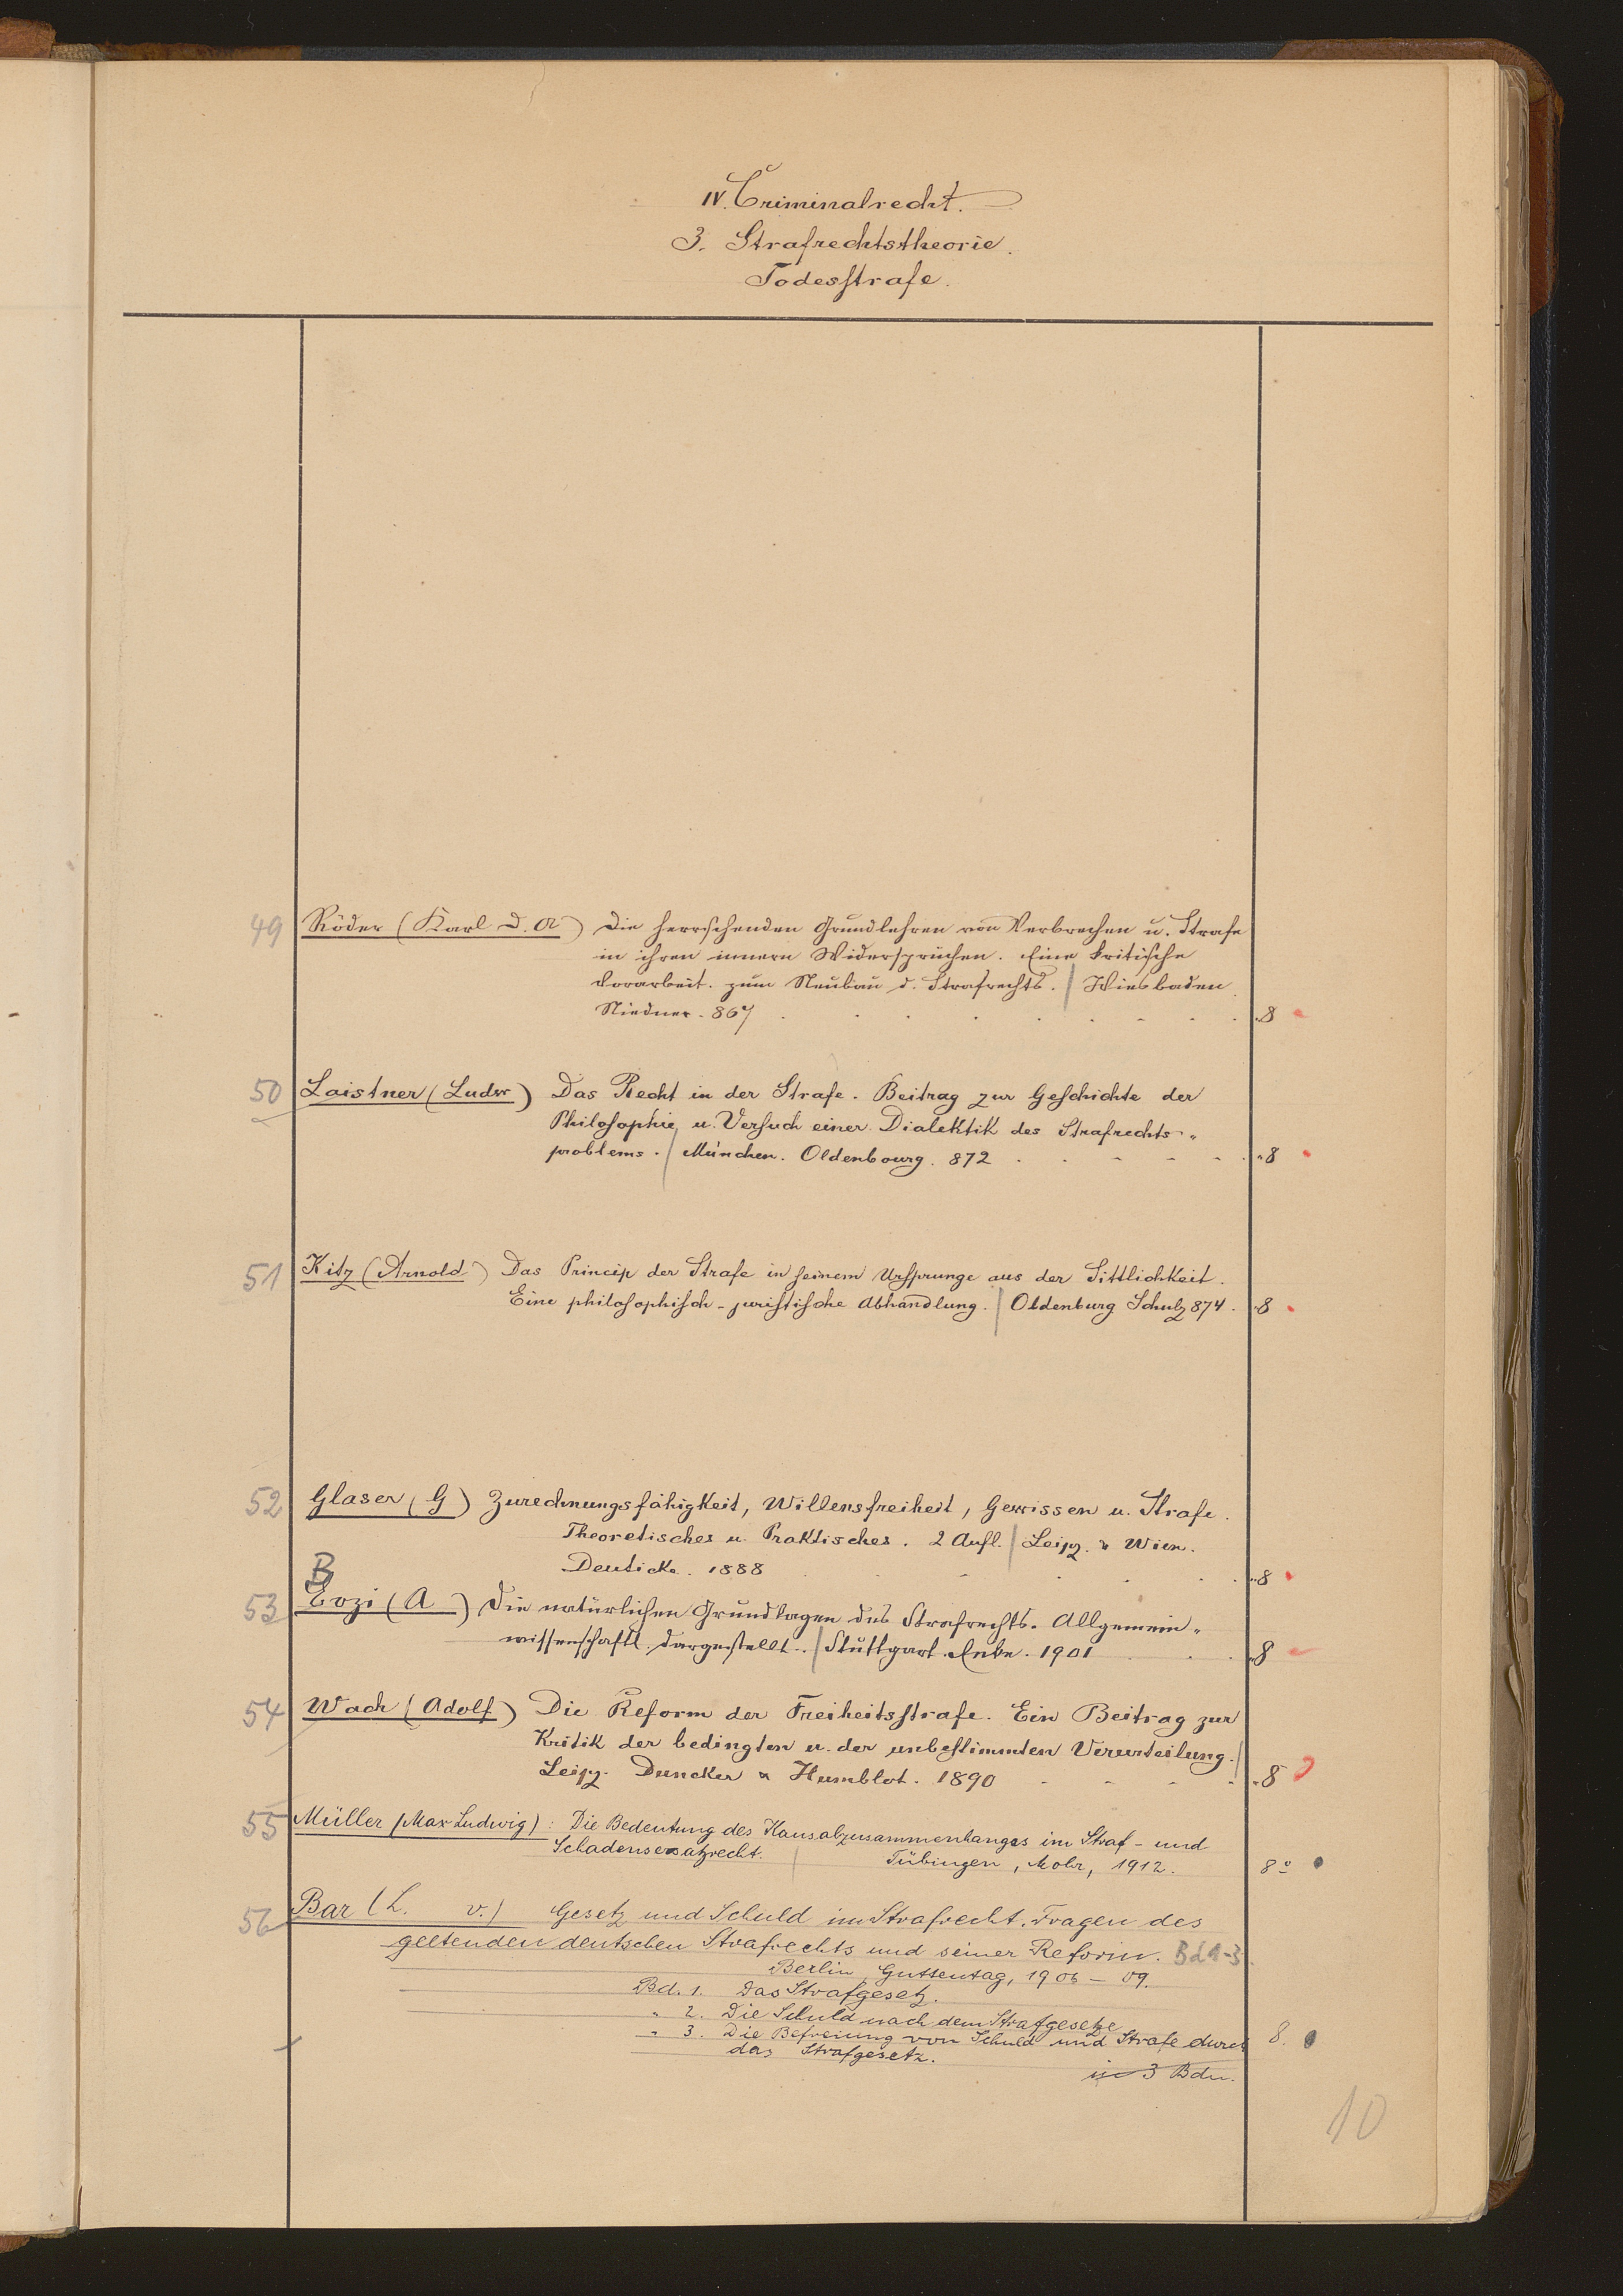 IV. Criminalrecht.
3. Strafrechtstheorie.
Todesstrafe.
49 Röder (Karl D. A) Die herrschenden Grundlehren von Verbrechen u. Strafe
in ihren innern Widersprüchen. Eine kritische
Vorarbeit. zum Neubau d. Strafrechts. / Wiesbaden
Niedner. 867 . . . . . . . . . 8
50 Laistner (Ludw) Das Recht in der Strafe. Beitrag zur Geschichte der
Philosophie u. Versuch einer Dialektik des Strafrechts-
problems. / München. Oldenbourg. 872 . . . . . . 8
51 Kitz (Arnold) Das Princip der Strafe in seinem Ursprunge aus der Sittlichkeit.
Eine philosophisch-juristische Abhandlung. / Oldenburg Schulz 874. 8
52 Glaser (G) Zurechnungsfähigkeit, Willensfreiheit, Gewissen u. Strafe.
Theoretisches u. Praktisches. 2 Aufl. / Leipz. & Wien.
Deuticke. 1888 . . . . . . 8
B
53 Eozi (A) Die natürlichen Grundlagen des Strafrechts. Allgemein-
wissenschaftl. dargestellt. / Stuttgart. Enke. 1901 . . . 8
54 Wach (Adolf) Die Reform der Freiheitsstrafe. Ein Beitrag zur
Kritik der bedingten u. der unbestimmten Verurteilung. /
Leipz. Duncker & Humblot. 1890 . . . . 8
55 Müller (Max Ludwig): Die Bedeutung des Kausalzusammenhanges im Straf- und
Schadensersatzrecht. / Tübingen, Mohr, 1912. 8º
56 Bar (L. v.) Gesetz und Schuld im Strafrecht. Fragen des
geltenden deutschen Strafrechts und seiner Reform. Bd 1-3
Berlin, Guttentag, 1906 – 09.
Bd. 1. Das Strafgesetz.
" 2. Die Schuld nach dem Strafgesetze
" 3. Die Befreiung von Schuld und Strafe durch 8.
das Strafgesetz.
in 3 Bdn.
10